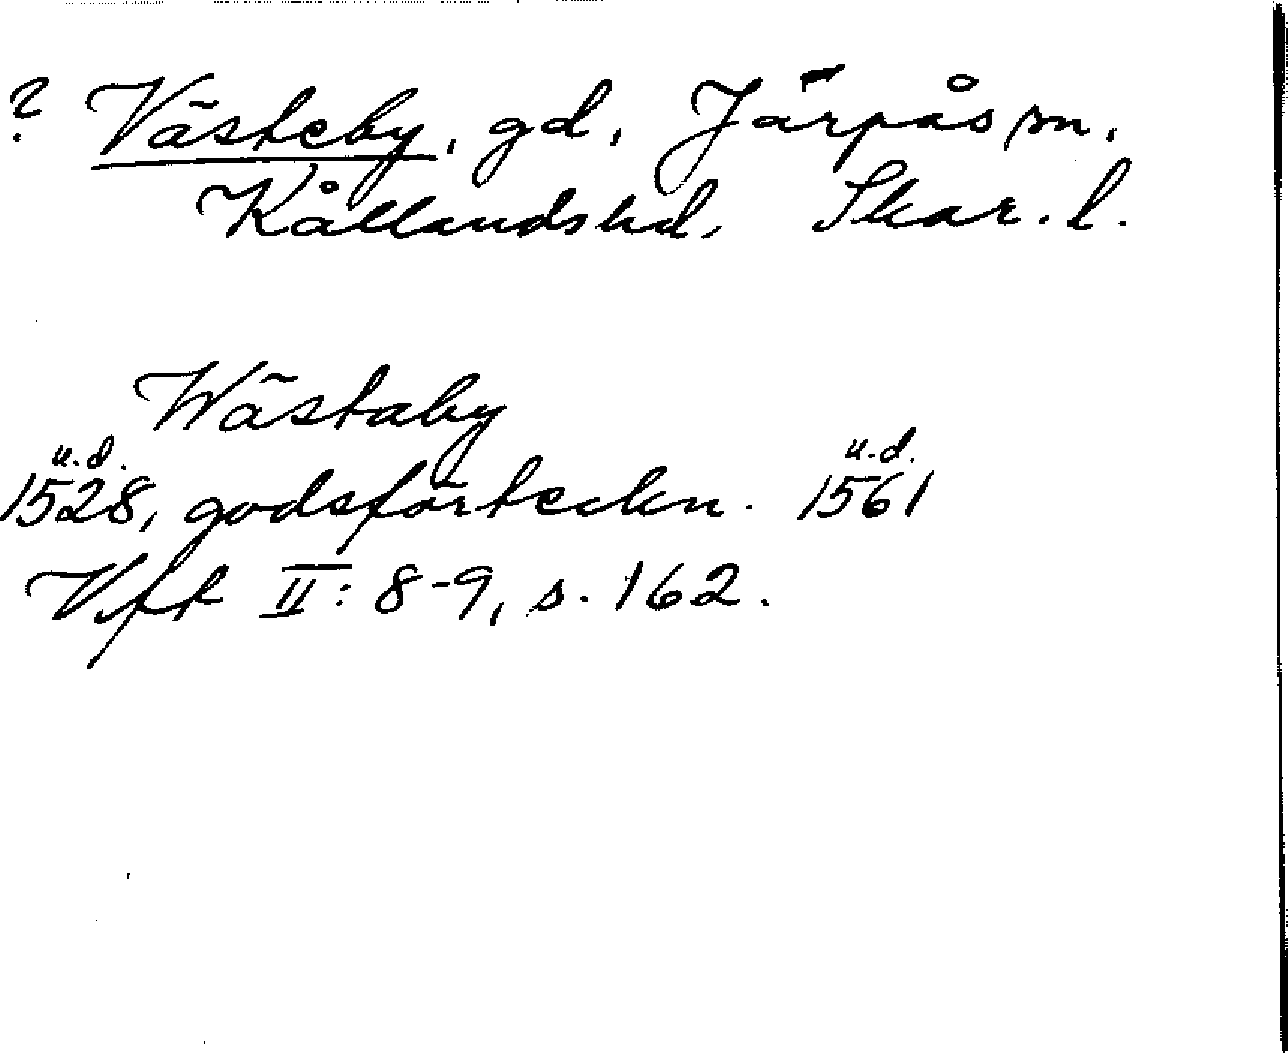 ? Västeby, gd, Järpås sn,
Kållandshd, Skar. l.
Wästaby
u.d. u.d.
1528, godsförteckn. 1561
Vft II: 8-9, s. 162.